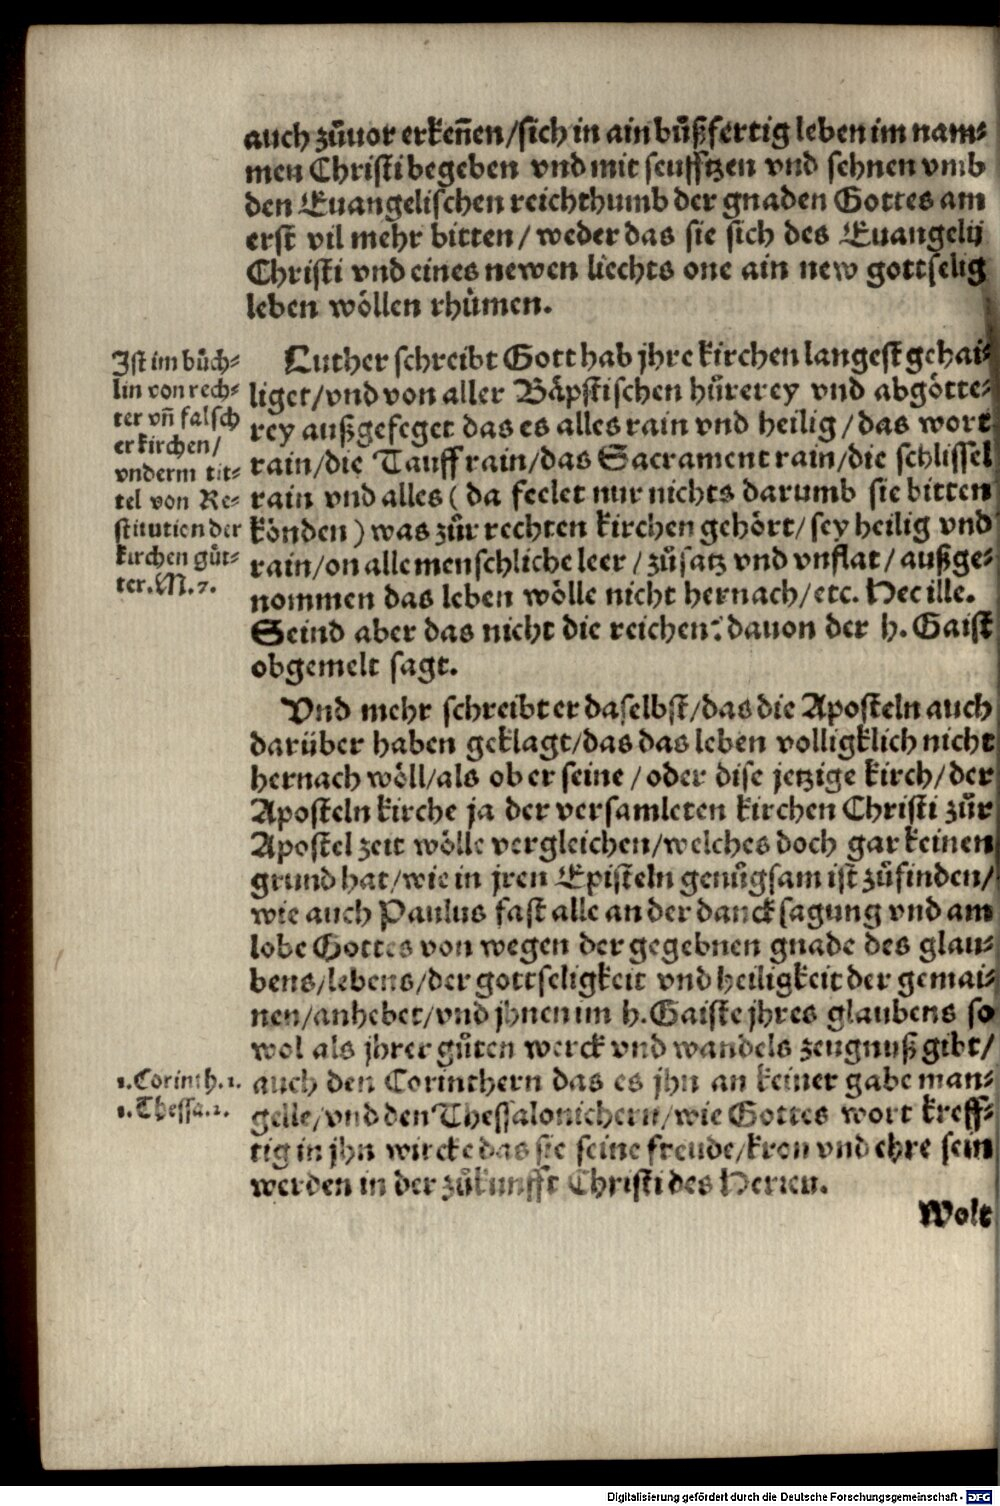 auch zůuor erkeñen/sich in ain bůßfertig leben im nam⸗
men Christi begeben vnd mit seufftzen vnd sehnen vmb
den Euangelischen reichthumb der gnaden Gottes am
erst vil mehr bitten/ weder das sie sich des Euangelij
Christi vnd eines newen liechts one ain new gottselig
leben wöllen rhümen.
Ist im bůch⸗
lin von rech⸗
ter vñ falsch
er kirchen/
vnderm tit⸗
tel von Re⸗
stitutien der
kirchen gůt⸗
ter. M. 7.
Luther schreibt Gott hab jhre kirchen langest gehai⸗
liget/vnd von aller Bäpstischen hůrerey vnd abgötte⸗
rey außgefeget das es alles rain vnd heilig/das wort
rain/die Tauff rain/das Sacrament rain/die schlissel
rain vnd alles (da feelet nur nichts darumb sie bitten
könden) was zůr rechten kirchen gehört/sey heilig vnd
rain/on alle menschliche leer/zůsatz vnd vnflat/außge⸗
nommen das leben wölle nicht hernach/etc. Hec ille.
Seind aber das nicht die reichen: dauon der h. Gaist
obgemelt sagt.
Vnd mehr schreibt er daselbst/das die Aposteln auch
darüber haben geklagt/das das leben volligklich nicht
hernach wöll/als ob er seine/oder dise jetzige kirch/der
Aposteln kirche ja der versamleten kirchen Christi zůr
Apostel zeit wölle vergleichen/welches doch gar keinen
grund hat/wie in jren Episteln genůgsam ist zůfinden/
wie auch Paulus fast alle an der dancksagung vnd am
lobe Gottes von wegen der gegebnen gnade des glau⸗
bens/lebens/der gottseligkeit vnd heiligkeit der gemai⸗
nen/anhebet/vnd jhnen im h. Gaiste jhres glaubens so
wol als jhrer gůten werck vnd wandels zeugnuß gibt/
1. Corinth. 1.
1. Thessa. 2.
auch den Corinthern das es jhn an keiner gabe man⸗
gelle/vnd den Thessalonichern/wie Gottes wort kreff⸗
tig in jhn wircke das sie seine freude/kron vnd ehre sein
werden in der zůkunfft Christi des Herren.
Wolt
Digitalisierung gefördert durch die Deutsche Forschungsgemeinschaft - DFG